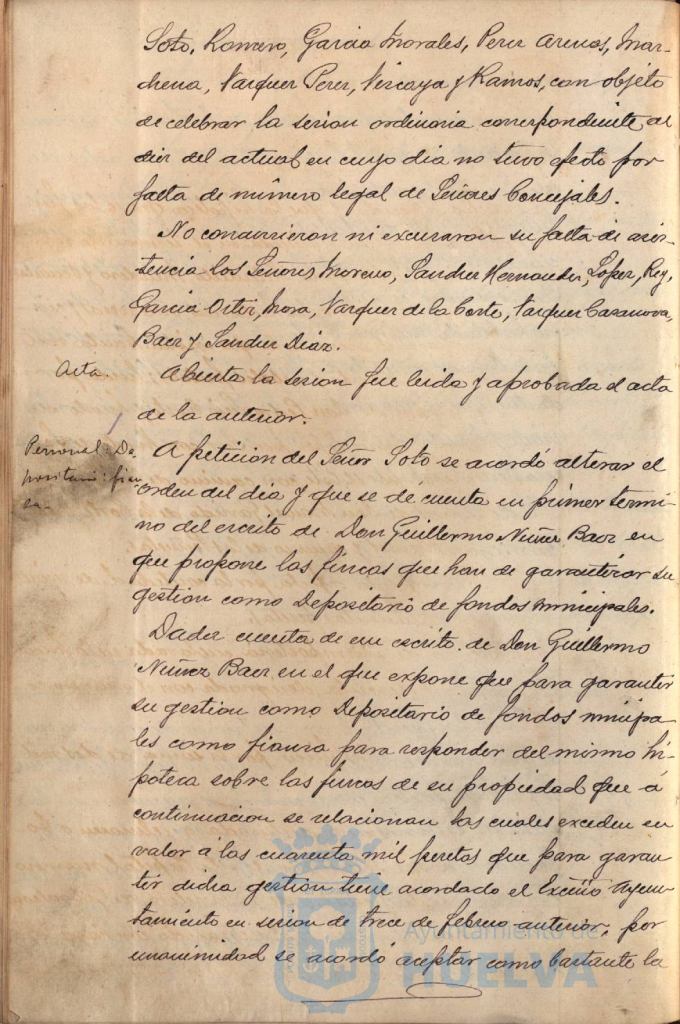 Soto, Romero, Garcia Morales, Perez Arenas, Mar-
chena, Vazquez Perez, Vizcaya y Ramos, con objeto
de celebrar la sesion ordinaria correspondiente al
diez del actual en cuyo dia no tuvo efecto por
falta de número legal de Señores Concejales.
No concurrieron ni excusaron su falta de asis-
tencia los Señores Moreno, Sanchez Hernandez, Lopez, Rey,
Garcia Ortiz, Mora, Vazquez de la Corte, Vazquez Casanova,
Baez y Sanchez Diaz.
Acta.
Abierta la sesion fue leida y aprobada el acta
de la anterior.
Personal: De
positario: fian
za.
A peticion del Señor Soto se acordó alterar el
orden del dia y que se dé cuenta en primer termi-
no del escrito de Don Guillermo Nuñez Baez en
que propone las fincas que han de garantizar su
gestion como Depositario de fondos municipales.
Dada cuenta de un escrito de Don Guillermo
Nuñez Baez en el que expone que para garantir
su gestion como Depositario de fondos municipa
les como fianza para responder del mismo hi-
poteca sobre las fincas de su propiedad que á
continuacion se relacionan las cuales exceden en
valor á las cuarenta mil pesetas que para garan-
tir dicha gestion tiene acordado el Excmo Ayun-
tamiento en sesion de trece de febrero anterior, por
unanimidad se acordó aceptar como bastante la
Ayuntamiento de
HUELVA